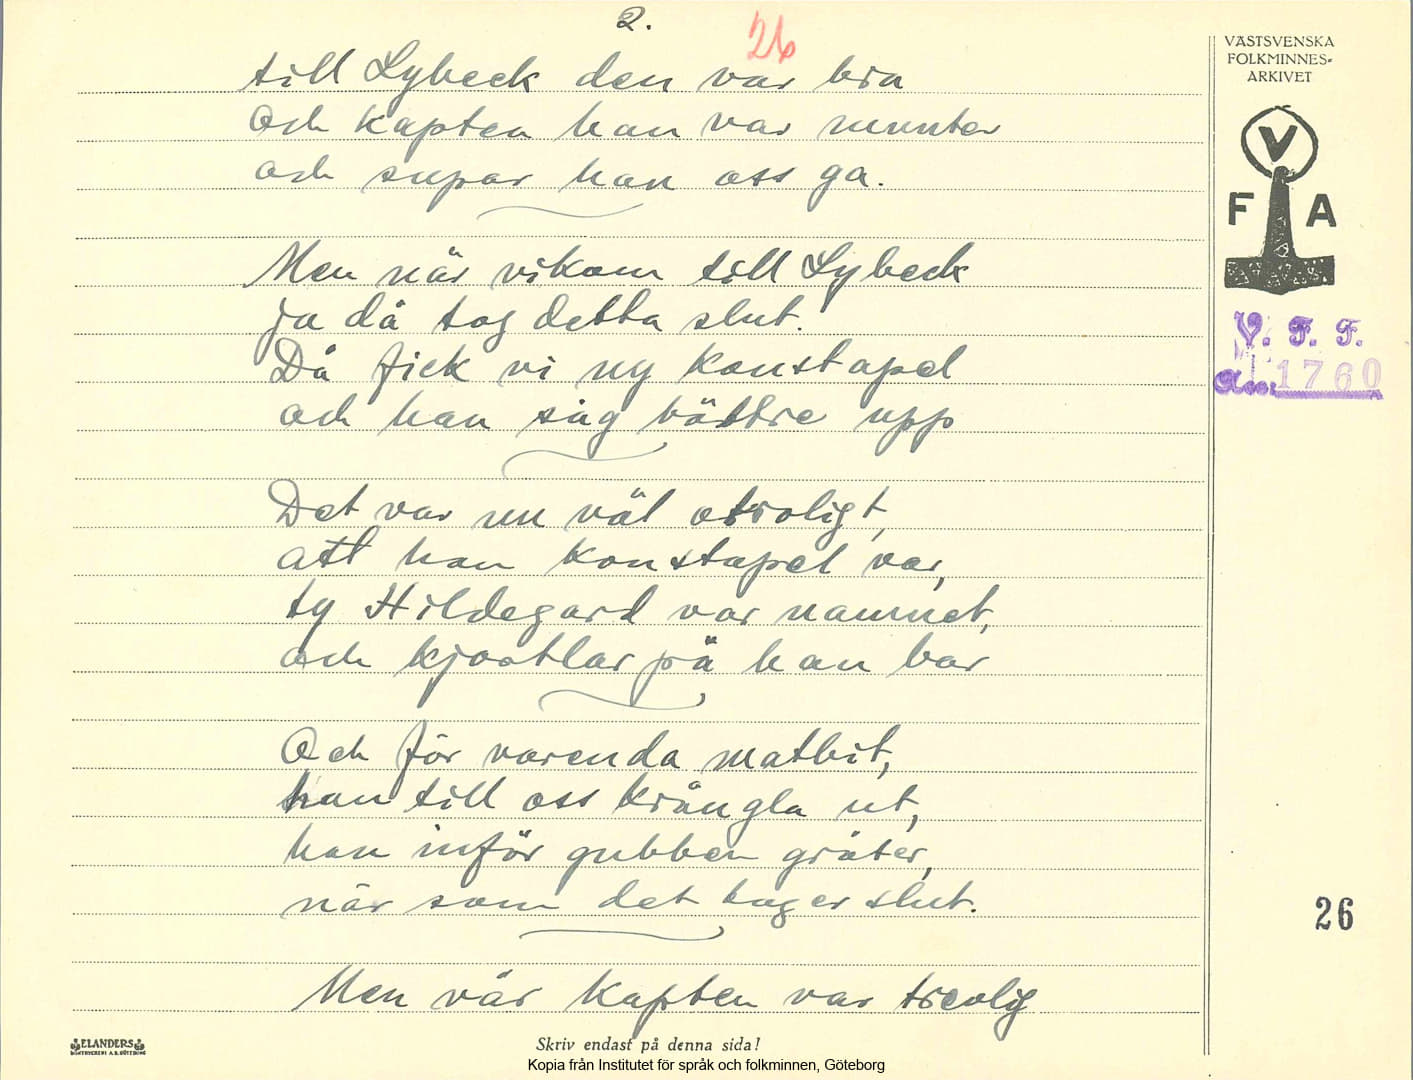 2.
26
till Lybeck den var bra
och kapten han var munter
och supar han oss ga.
Men när vikom till Lybeck
ja då tog detta slut.
Då fick vi ny konstapel
och han såg bättre upp
Det var nu väl otroligt,
att han konstapel var,
ty Hildegard var namnet,
och kjortlar på han bar
Och för varenda matbit,
han till oss krångla ut,
han inför gubben gråter,
när som det tager slut.
Men vår kapten var trevlig
VÄSTSVENSKA
FOLKMINNES-
ARKIVET
V
F A
V. F. F.
Acc: 1760
26
ELANDERS
BOKTRYCKERI A.B. GÖTEBORG
Skriv endast på denna sida!
Kopia från Institutet för språk och folkminnen, Göteborg